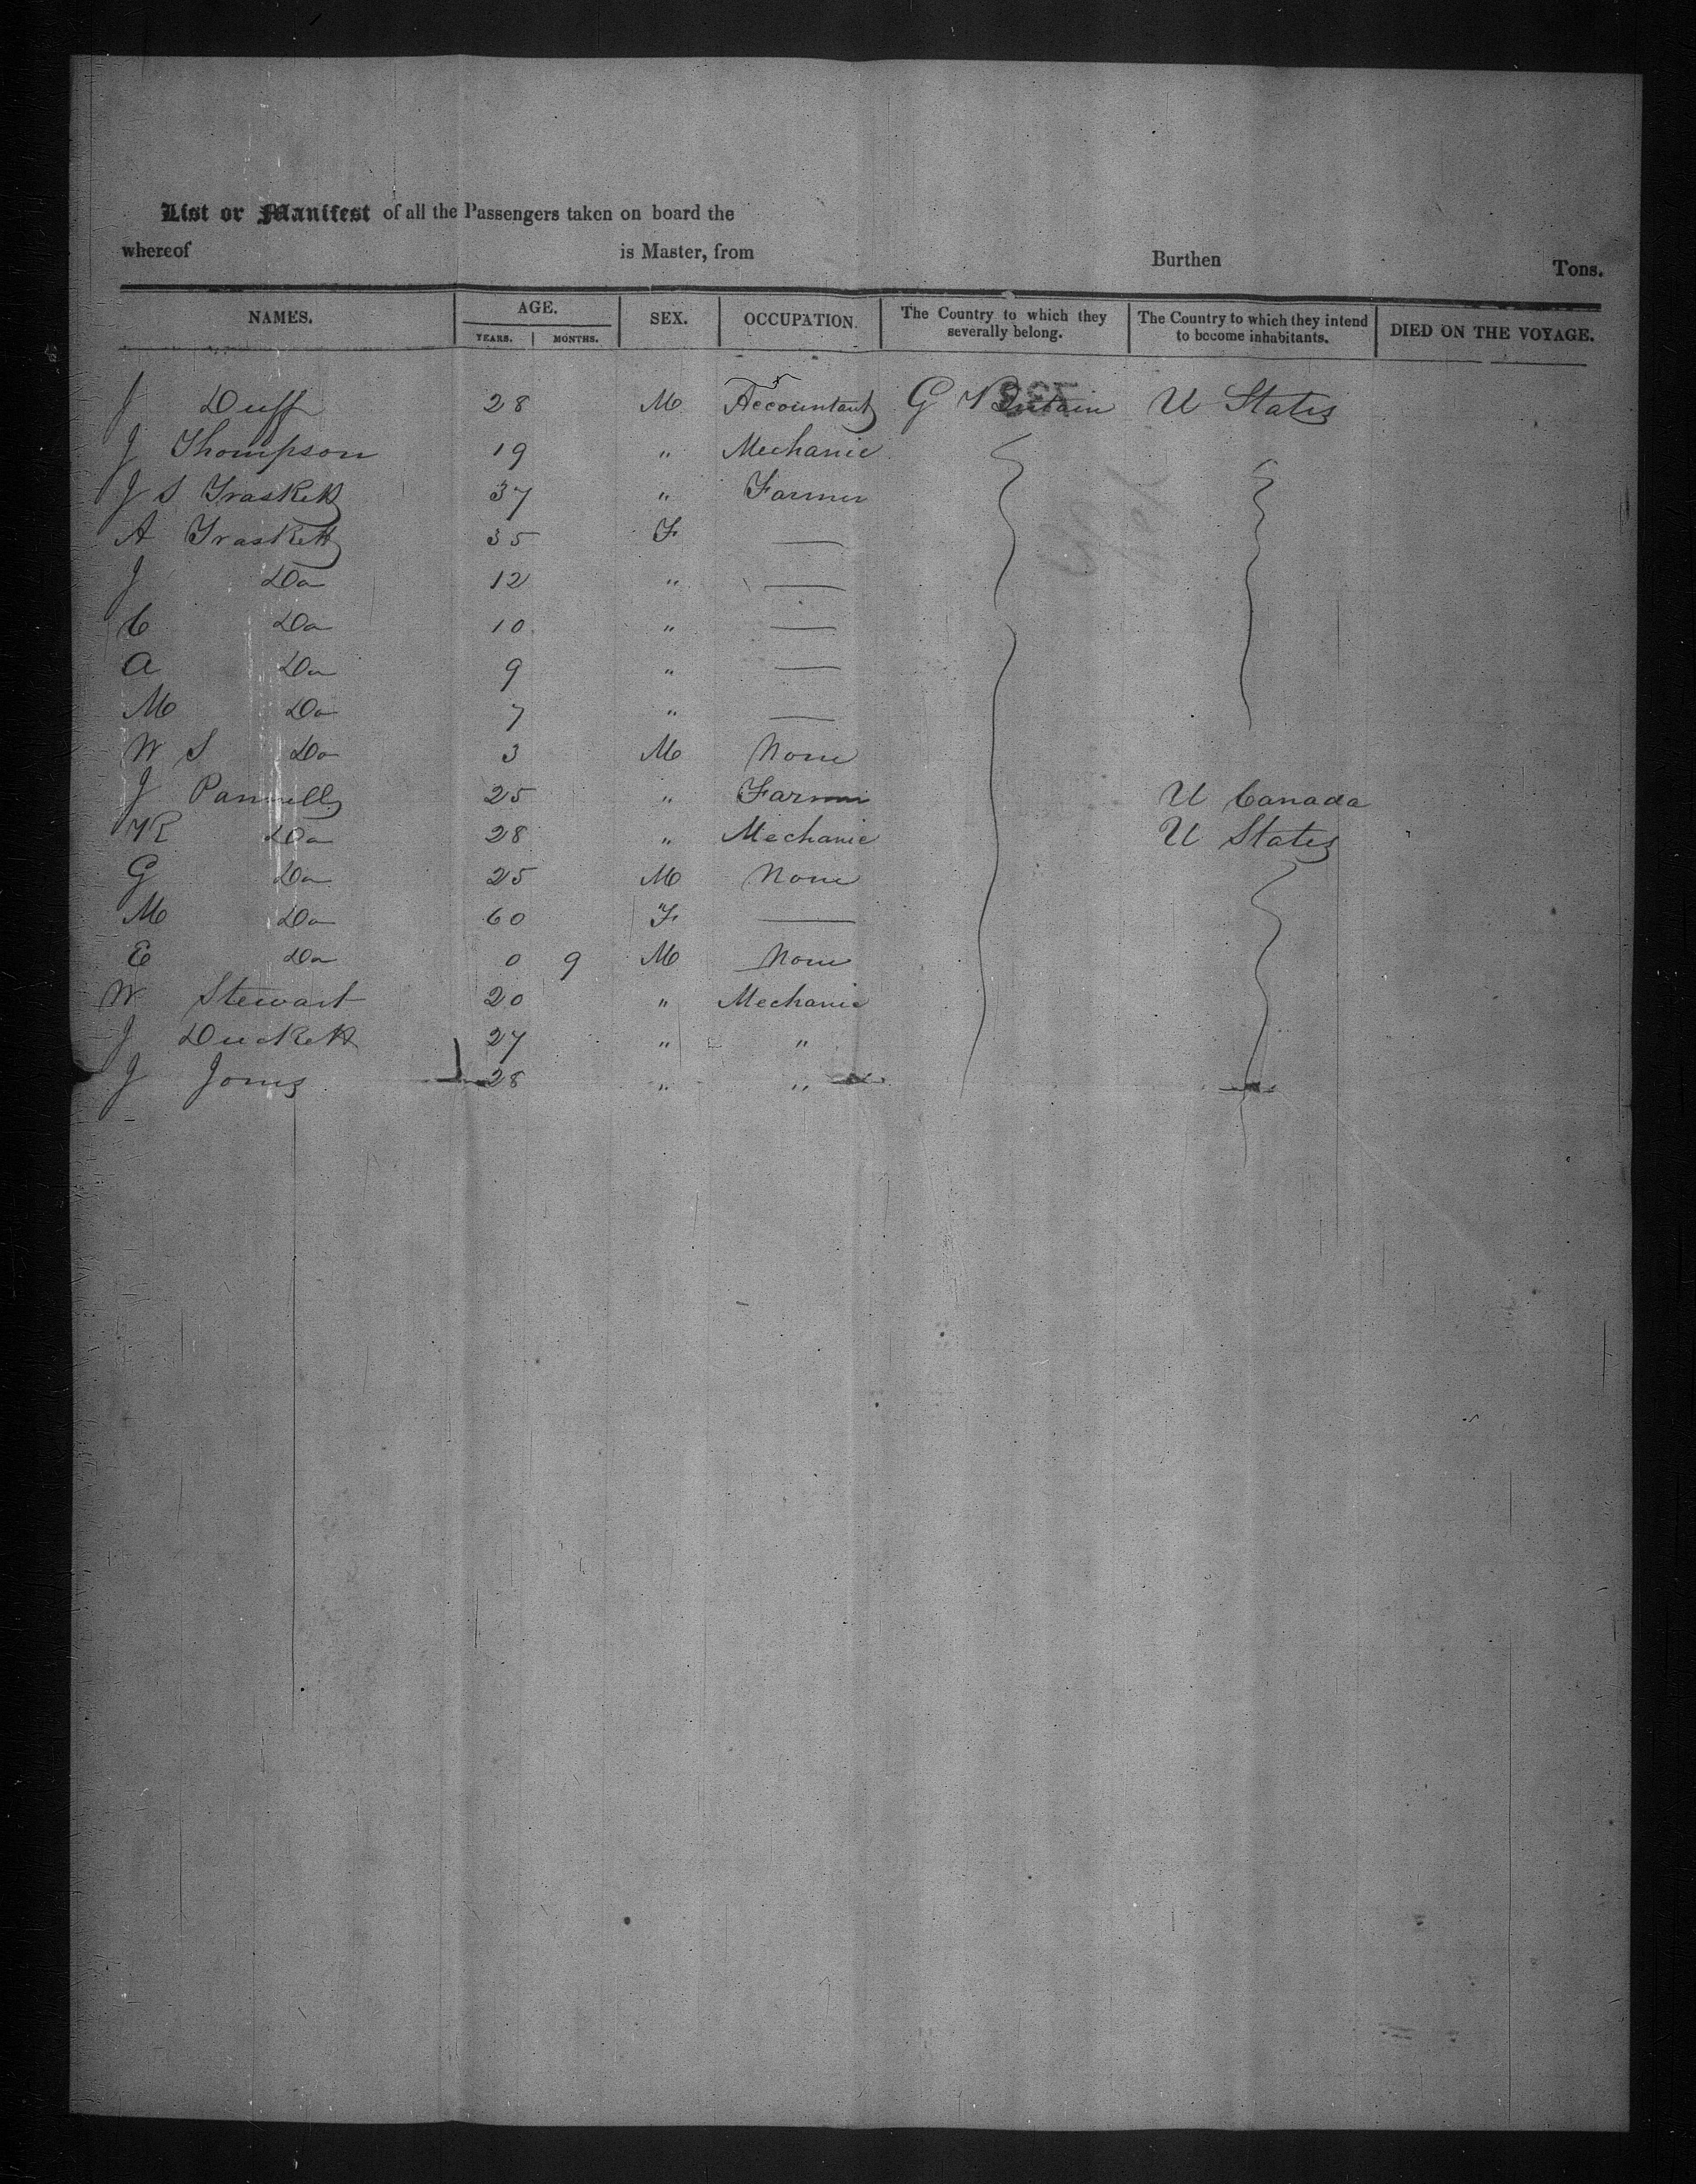 List or Manifest of all the Passengers taken on board the
whereof is Master, from Burthen Tons.
NAMES. AGE. SEX. OCCUPATION. The Country to which they severally belong. The Country to which they intend to become inhabitants. DIED ON THE VOYAGE.
YEARS. MONTHS.
J Duff 28 M Accountant G Britain U States
J Thompson 19 " Mechanic
J S Traskett 37 " Farmer
A Traskett 35 F —
J Do 12 " —
C Do 10 " —
A Do 9 " —
M Do 7 " —
W S Do 3 M None
J Pannell 25 " Farmer U Canada
R Do 28 " Mechanic U States
G Do 25 M None
M Do 60 F —
E Do 0 9 M None
W Stewart 20 " Mechanic
J Duckett 27 " "
J Jones 28 " "